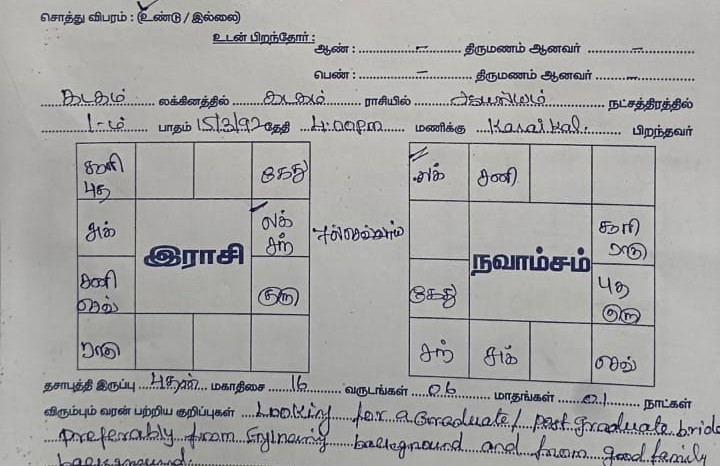 சொத்து விபரம் : (உண்டு / இல்லை)
உடன் பிறந்தோர் :
ஆண் : – திருமணம் ஆனவர் –
பெண் : – திருமணம் ஆனவர் –
கடகம் லக்கினத்தில் கடகம் ராசியில் ஆயில்யம் நட்சத்திரத்தில்
1-ம் பாதம் 15/3/92 தேதி 4.00pm மணிக்கு Karaikal பிறந்தவர்
சூரி புத கேது
சுக் லக் சந்
இராசி
சனி செவ் குரு
ராகு
லக் சனி
சூரி ராகு
நவாம்சம்
கேது புத குரு
சந் சுக் செவ்
தசாபுத்தி இருப்பு புதன் மகாதிசை 16 வருடங்கள் 06 மாதங்கள் 01 நாட்கள்
விரும்பும் வரன் பற்றிய குறிப்புகள் Looking for a Graduate / post graduate bride
preferably from background and from good family
background.